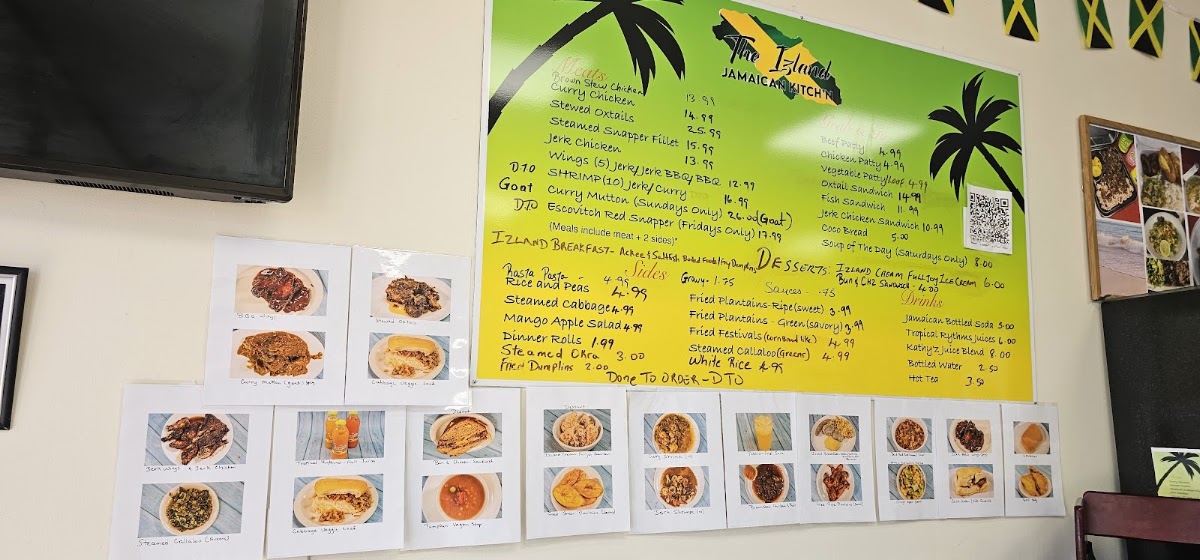 The Izland
JAMAICAN KITCH'N
Meats
Brown Stew Chicken
Curry Chicken 13.99
Stewed Oxtails 14.99
Steamed Snapper Fillet 25.99
Jerk Chicken 15.99
Wings (5) Jerk/Jerk BBQ/BBQ 13.99
DTO SHRIMP (10) Jerk/Curry 12.99
Goat Curry Mutton (Sundays Only) 16.99
DTO Escovitch Red Snapper (Fridays Only) 26.00 (Goat)
(Meals include meat + 2 sides)* 17.99
IZLAND BREAKFAST- Ackee & Saltfish, Boiled Food/Fry Dumpling
Sides
Rasta Pasta 4.99
Rice and Peas 4.99
Steamed Cabbage 4.99
Mango Apple Salad 4.99
Dinner Rolls 1.99
Steamed Okra 3.00
Fried Dumplins 2.00
Gravy- 1.75
Sauces - .75
Fried Plantains-Ripe (sweet) 3.99
Fried Plantains - Green (savory) 3.99
Fried Festivals (cornbread like) 4.99
Steamed Callaloo (Greens) 4.99
White Rice 4.99
Done To ORDER-DTO
Beef Patty 4.99
Chicken Patty 4.99
Vegetable Patty/Loaf 4.99
Oxtail Sandwich 14.99
Fish Sandwich 11.99
Jerk Chicken Sandwich 10.99
Coco Bread 5.00
Soup of The Day (Saturdays Only) 8.00
DESSERTS: IZLAND CREAM FULL JOY ICE CREAM 6.00
Bun & CHZ Sandwich - 4.00
Drinks
Jamaican Bottled Soda 5.00
Tropical Rythms Juices 6.00
Kathy'z Juice Blend 8.00
Bottled Water 2.50
Hot Tea 3.50
BBQ Wings
Stewed Oxtails
Cabbage Veggie Loaf
Jerk Wings & Jerk Chicken
Steamed Callaloo (Greens)
Cabbage Veggie Loaf
Bun & Cheese Sandwich
Pumpkin Veggie Soup